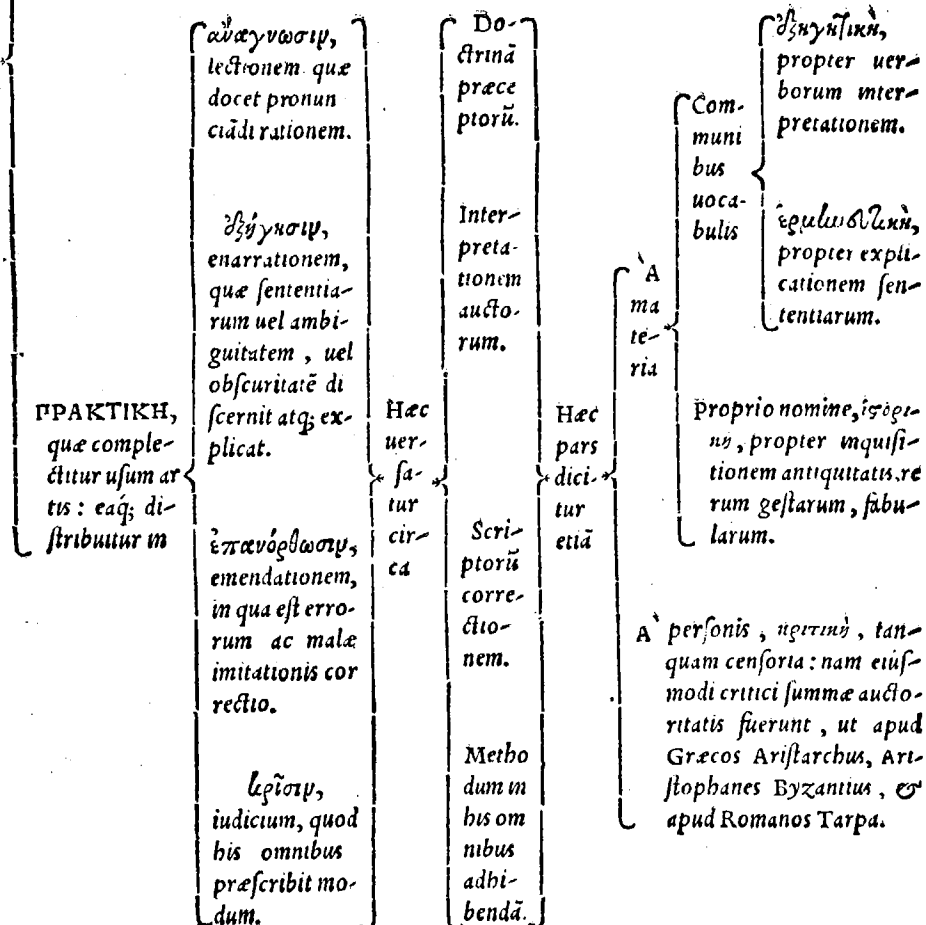 ΠΡΑΚΤΙΚΗ,
quæ comple-
ctitur uſum ar
tis : eaq́; di-
ſtribuitur in
ἀνάγνωσιν,
lectionem quæ
docet pronun
ciãdi rationem.
ἐξήγησιν,
enarrationem,
quæ ſententia-
rum uel ambi-
guitatem , uel
obſcuritatẽ di
ſcernit atq; ex-
plicat.
ἐπανόρθωσιν,
emendationem,
in qua eſt erro-
rum ac malæ
imitationis cor
rectio.
κρῖσιν,
iudicium, quod
his omnibus
præſcribit mo-
dum.
Hæc
uer-
ſa-
tur
cir-
ca
Do-
ctrinã
præce
ptorũ.
Inter-
preta-
tionem
aucto-
rum.
Scri-
ptorũ
corre-
ctio-
nem.
Metho
dum in
his om
nibus
adhi-
bendã.
Hæc
pars
dici-
tur
etiã
À
ma
te-
ria
Com-
muni
bus
uoca-
bulis
ἐξηγητικὴ,
propter uer-
borum inter-
pretationem.
ἑρμηνευτικὴ,
propter expli-
cationem ſen-
tentiarum.
Proprio nomine, ἱστορι-
κὴ, propter inquiſi-
tionem antiquitatis, re
rum geſtarum, fabu-
larum.
À perſonis , κριτικὴ , tan-
quam cenſoria : nam eiuſ-
modi critici ſummæ aucto-
ritatis fuerunt , ut apud
Græcos Ariſtarchus, Ari-
ſtophanes Byzantius , &
apud Romanos Tarpa.